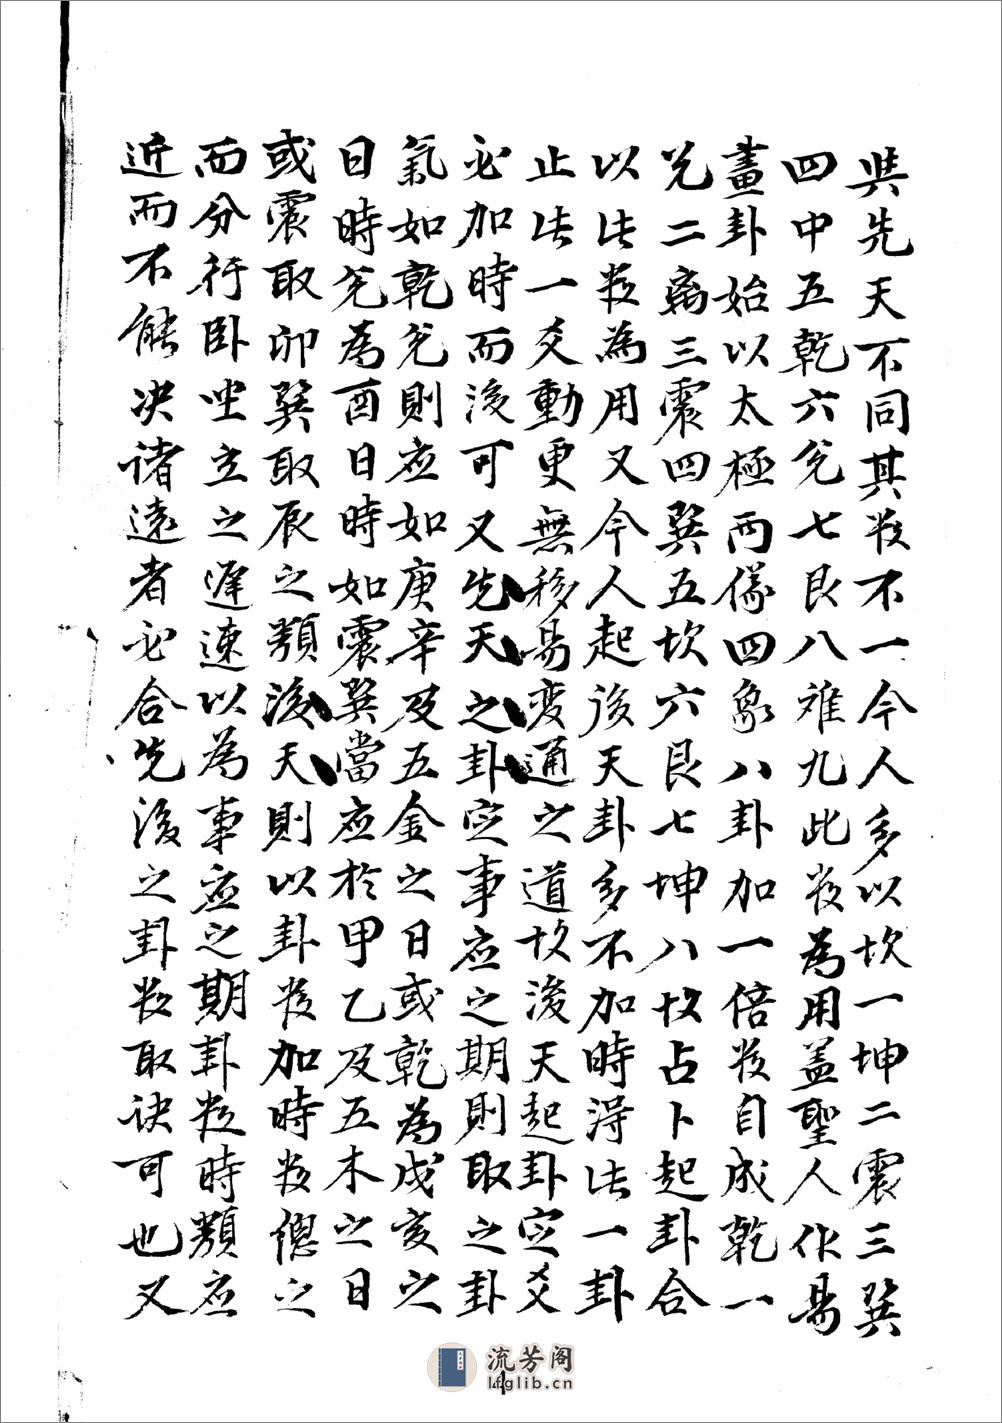 與先天不同其数不一今人多以坎一坤二震三巽
四中五乾六兌七艮八难九此数為用盖聖人作易
畫卦始以太極兩儀四象八卦加一倍数自成乾一
兑二离三震四巽五坎六艮七坤八故占卜起卦合
以此数為用又今人起後天卦多不加時得此一卦
止此一爻動更無移易变通之道故後天起卦定爻
必加時而後可又先天之卦定事应之期則取之卦
氣如乾兌則应如庚辛及五金之日或乾為戌亥之
日時兌為酉日時如震巽當应於甲乙及五木之日
或震取卯巽取辰之類後天則以卦数加時数總之
而分行卧坐立之遲速以為事应之期卦数時類应
近而不能决诸遠者必合先後之卦数取诀可也又
流芳阁
lfglib.cn